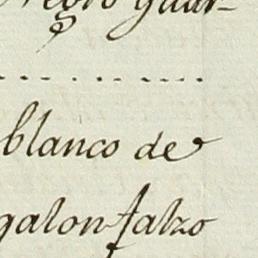 negro guar-
blanco de
galon falzo